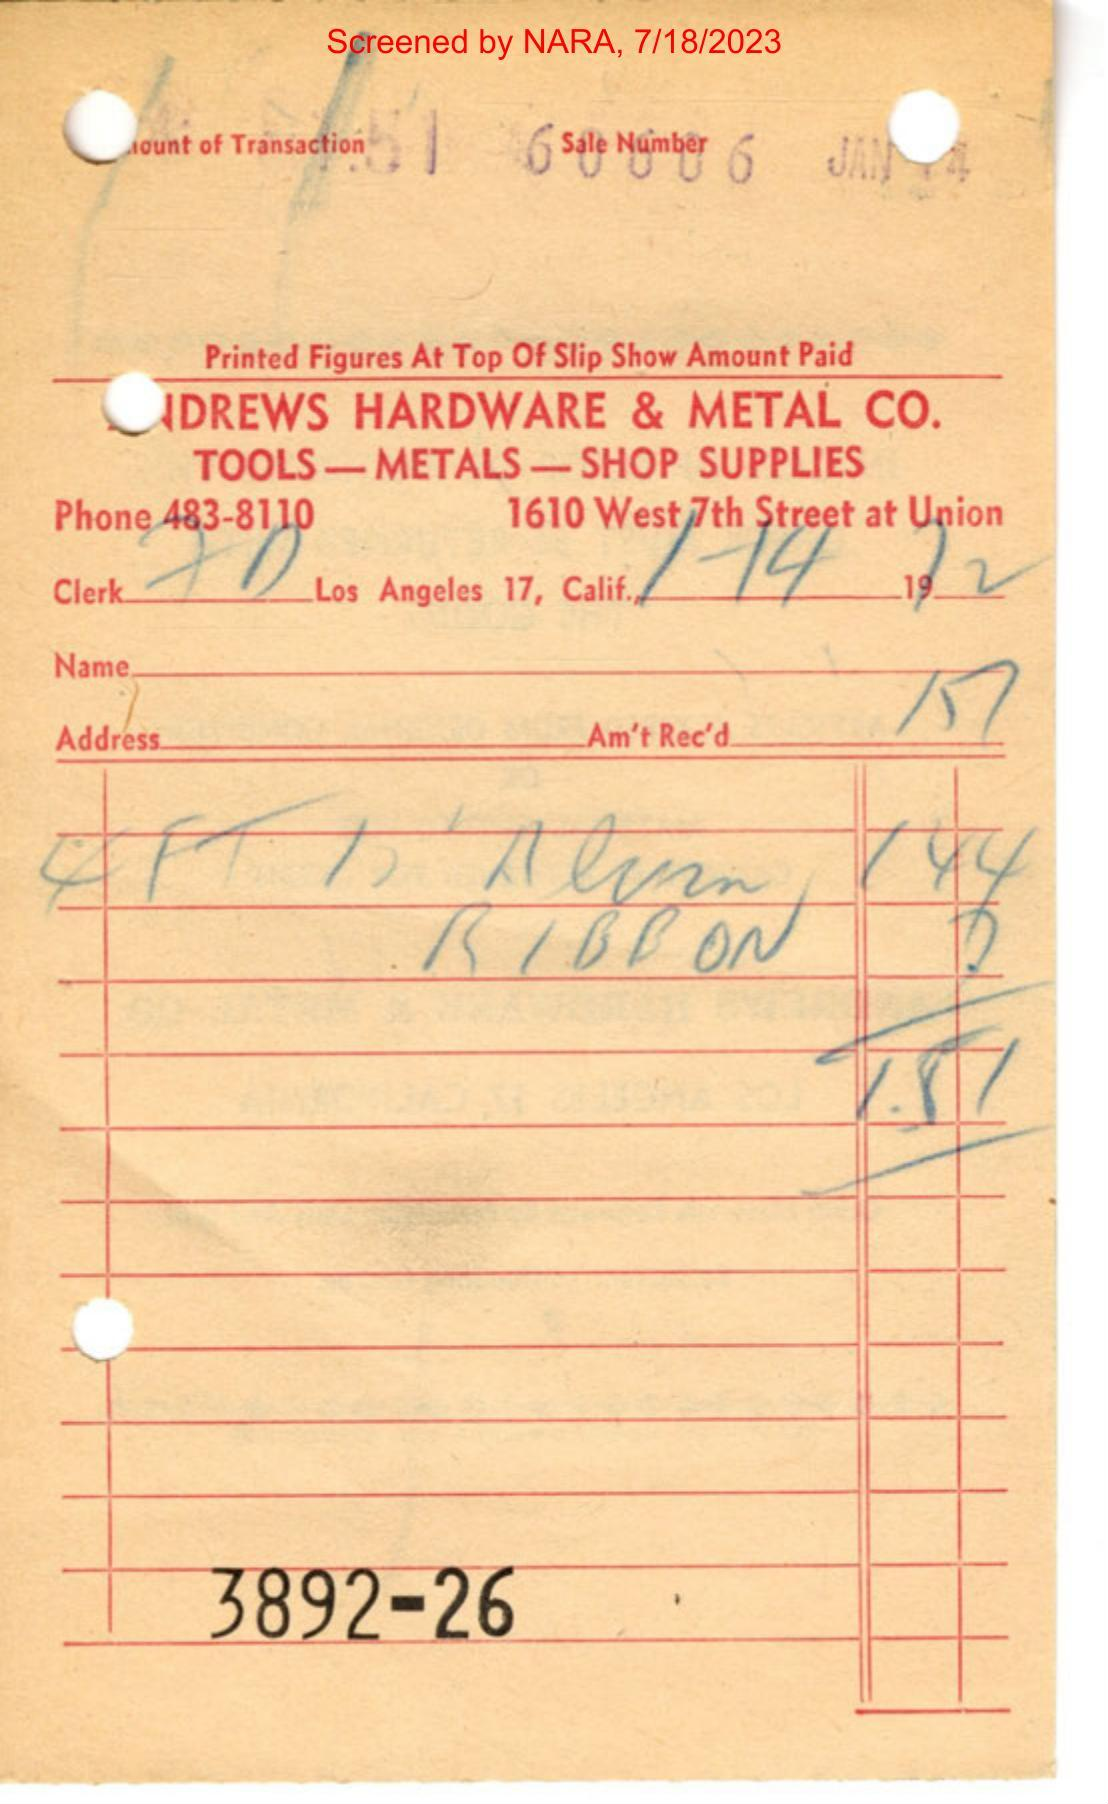 Screened by NARA, 7/18/2023
ount of Transaction .51 Sale Number 60606 JAN 14
Printed Figures At Top Of Slip Show Amount Paid
NDREWS HARDWARE & METAL CO.
TOOLS — METALS — SHOP SUPPLIES
Phone 483-8110 1610 West 7th Street at Union
Clerk Los Angeles 17, Calif., 1-14 1972
Name
Address Am't Rec'd 151
4 FT Alum 144
RIBBON 7
3892-26